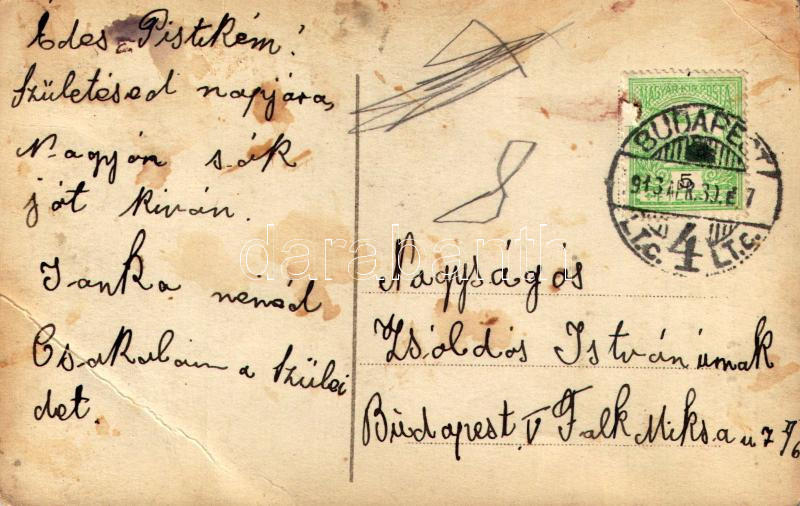 Édes Pistikém!
Születésed napjára,
Nagyon sok
jót kiván.
Janka nénéd
Csakolám a Szülei
det.
MAGYAR KIR. POSTA
BUDAPEST
913 ÁPR. 30. E 7
5
I.T.C. 4 I.T.C.
Nagyságos
Zsóldos István úrnak
Budapest V Falk Miksa u 7
darabanth